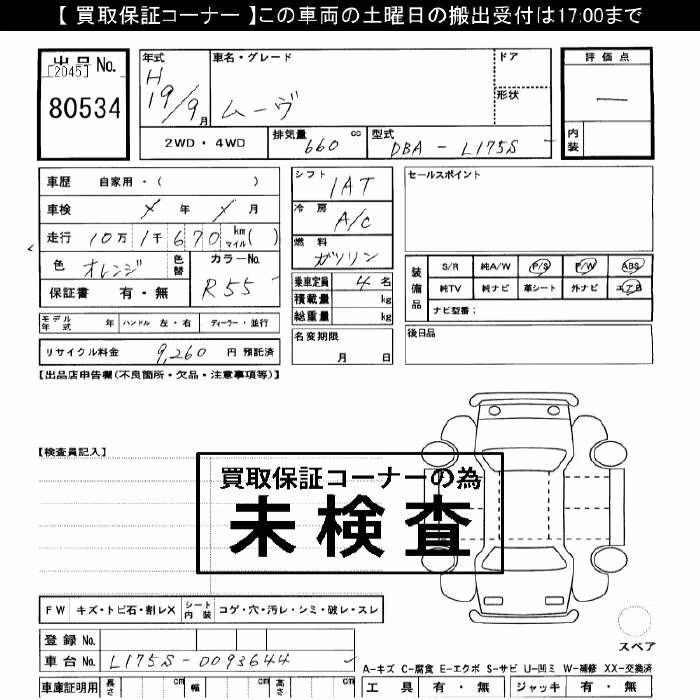 【 買取保証コーナー 】この車両の土曜日の搬出受付は17:00まで
出品No.
[2045]
80534
年式
H
19/9月
車名・グレード
ムーヴ
ドア
形状
評価点
―
内装
2WD・4WD
排気量 660 cc
型式 DBA - L175S
車歴 自家用・( )
車検 ✓ 年 ✓ 月
走行 10万 1千 670 km マイル( )
色 オレンジ 色替
カラーNo.
R55
保証書 有・無
シフト 1AT
冷房 A/C
燃料 ガソリン
乗車定員 4 名
積載量 kg
総重量 kg
セールスポイント
装備品
S/R 純A/W P/S P/W ABS
純TV 純ナビ 革シート 外ナビ エアB
ナビ型番:
モデル年式 年 ハンドル 左・右 ディーラー・並行
名変期限
月 日
後日品
リサイクル料金 9,260 円 預託済
【出品店申告欄(不良箇所・欠品・注意事項等)】
【検査員記入】
買取保証コーナーの為
未検査
FW キズ・トビ石・割レX シート内装 コゲ・穴・汚レ・シミ・破レ・スレ
スペア
登録No.
車台No. L175S-0093644
A-キズ C-腐食 E-エクボ S-サビ U-凹ミ W-補修 XX-交換済
車庫証明用 長さ cm 幅 cm 高さ cm
工具 有・無 ジャッキ 有・無